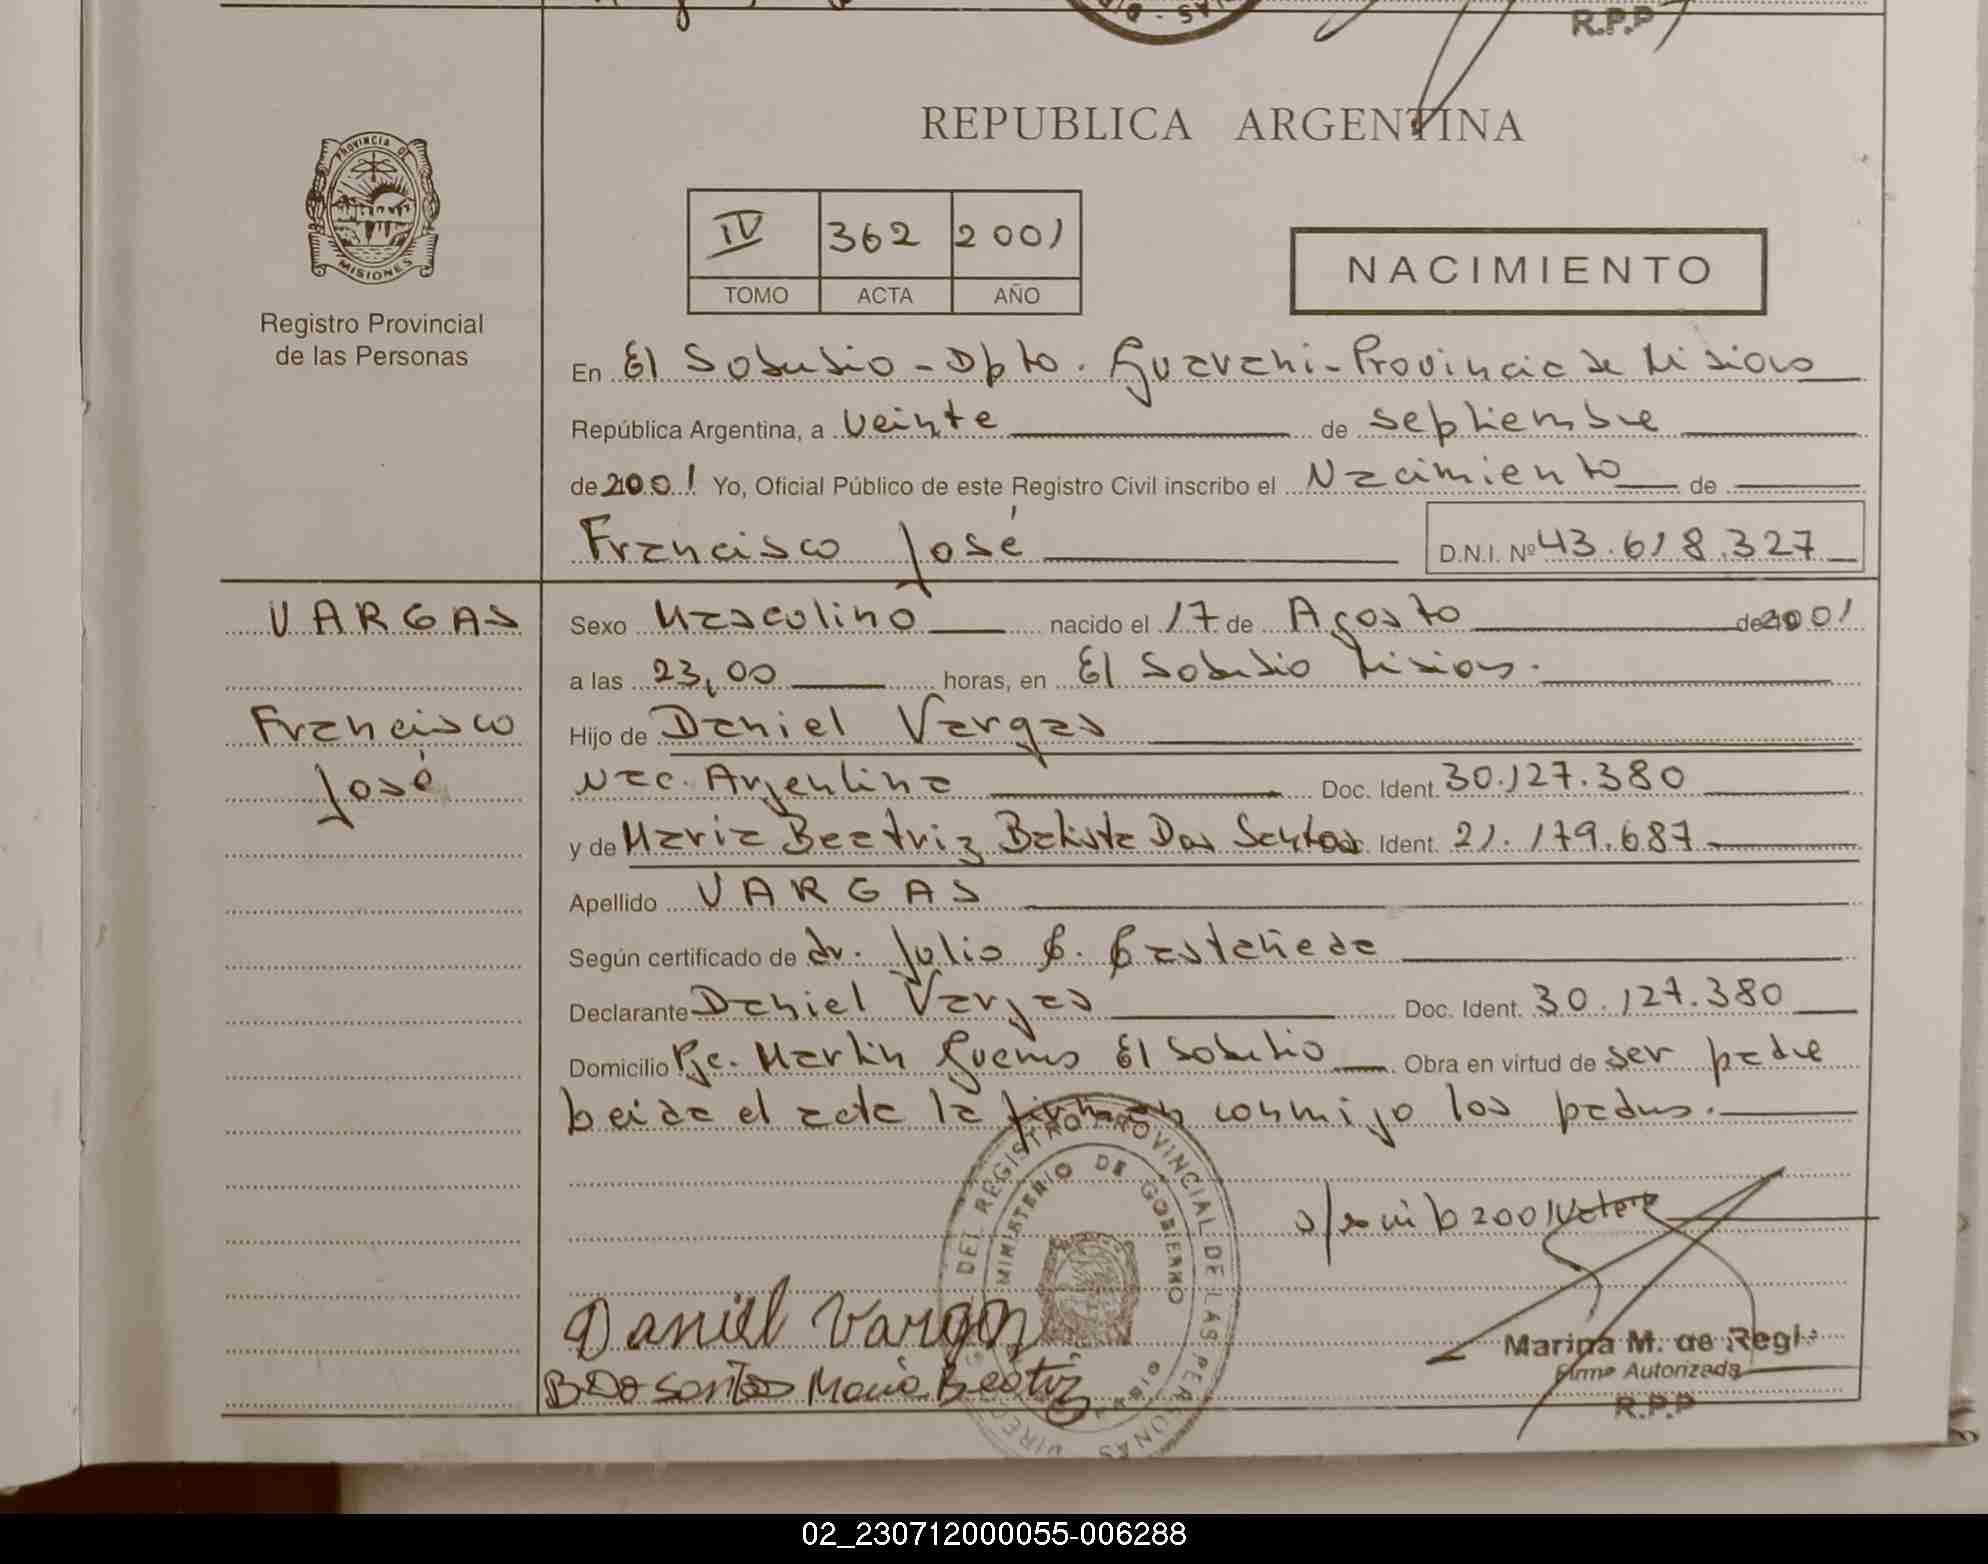 R.P.P
REPUBLICA ARGENTINA
PROVINCIA DE
MISIONES
Registro Provincial
de las Personas
IV 362 2001
TOMO ACTA AÑO
NACIMIENTO
En El Soberbio - Dpto. Guarani - Provincia de Misiones
República Argentina, a veinte de septiembre
de 2001 Yo, Oficial Público de este Registro Civil inscribo el Nacimiento de
Francisco José D.N.I. Nº 43.618.327
VARGAS
Francisco
José
Sexo Masculino nacido el 17 de Agosto de 2001
a las 23,00 horas, en El Soberbio Misiones.
Hijo de Daniel Vargas
Nac. Argentina Doc. Ident. 30.127.380
y de Maria Beatriz Batista Dos Santos Ident. 21.179.687
Apellido VARGAS
Según certificado de dr. Julio C. Castañeda
Declarante Daniel Vargas Doc. Ident. 30.127.380
Domicilio Pje. Martin Guemes El Soberbio Obra en virtud de ser padre
leida el acta la firman conmigo los padres.
2001 vale
Daniel Vargas
B Do Santos Maria Beatriz
DEL REGISTRO PROVINCIAL DE LAS PERSONAS
MINISTERIO DE GOBIERNO
Marina M. de Regi
Firma Autorizada
R.P.P
02_230712000055-006288